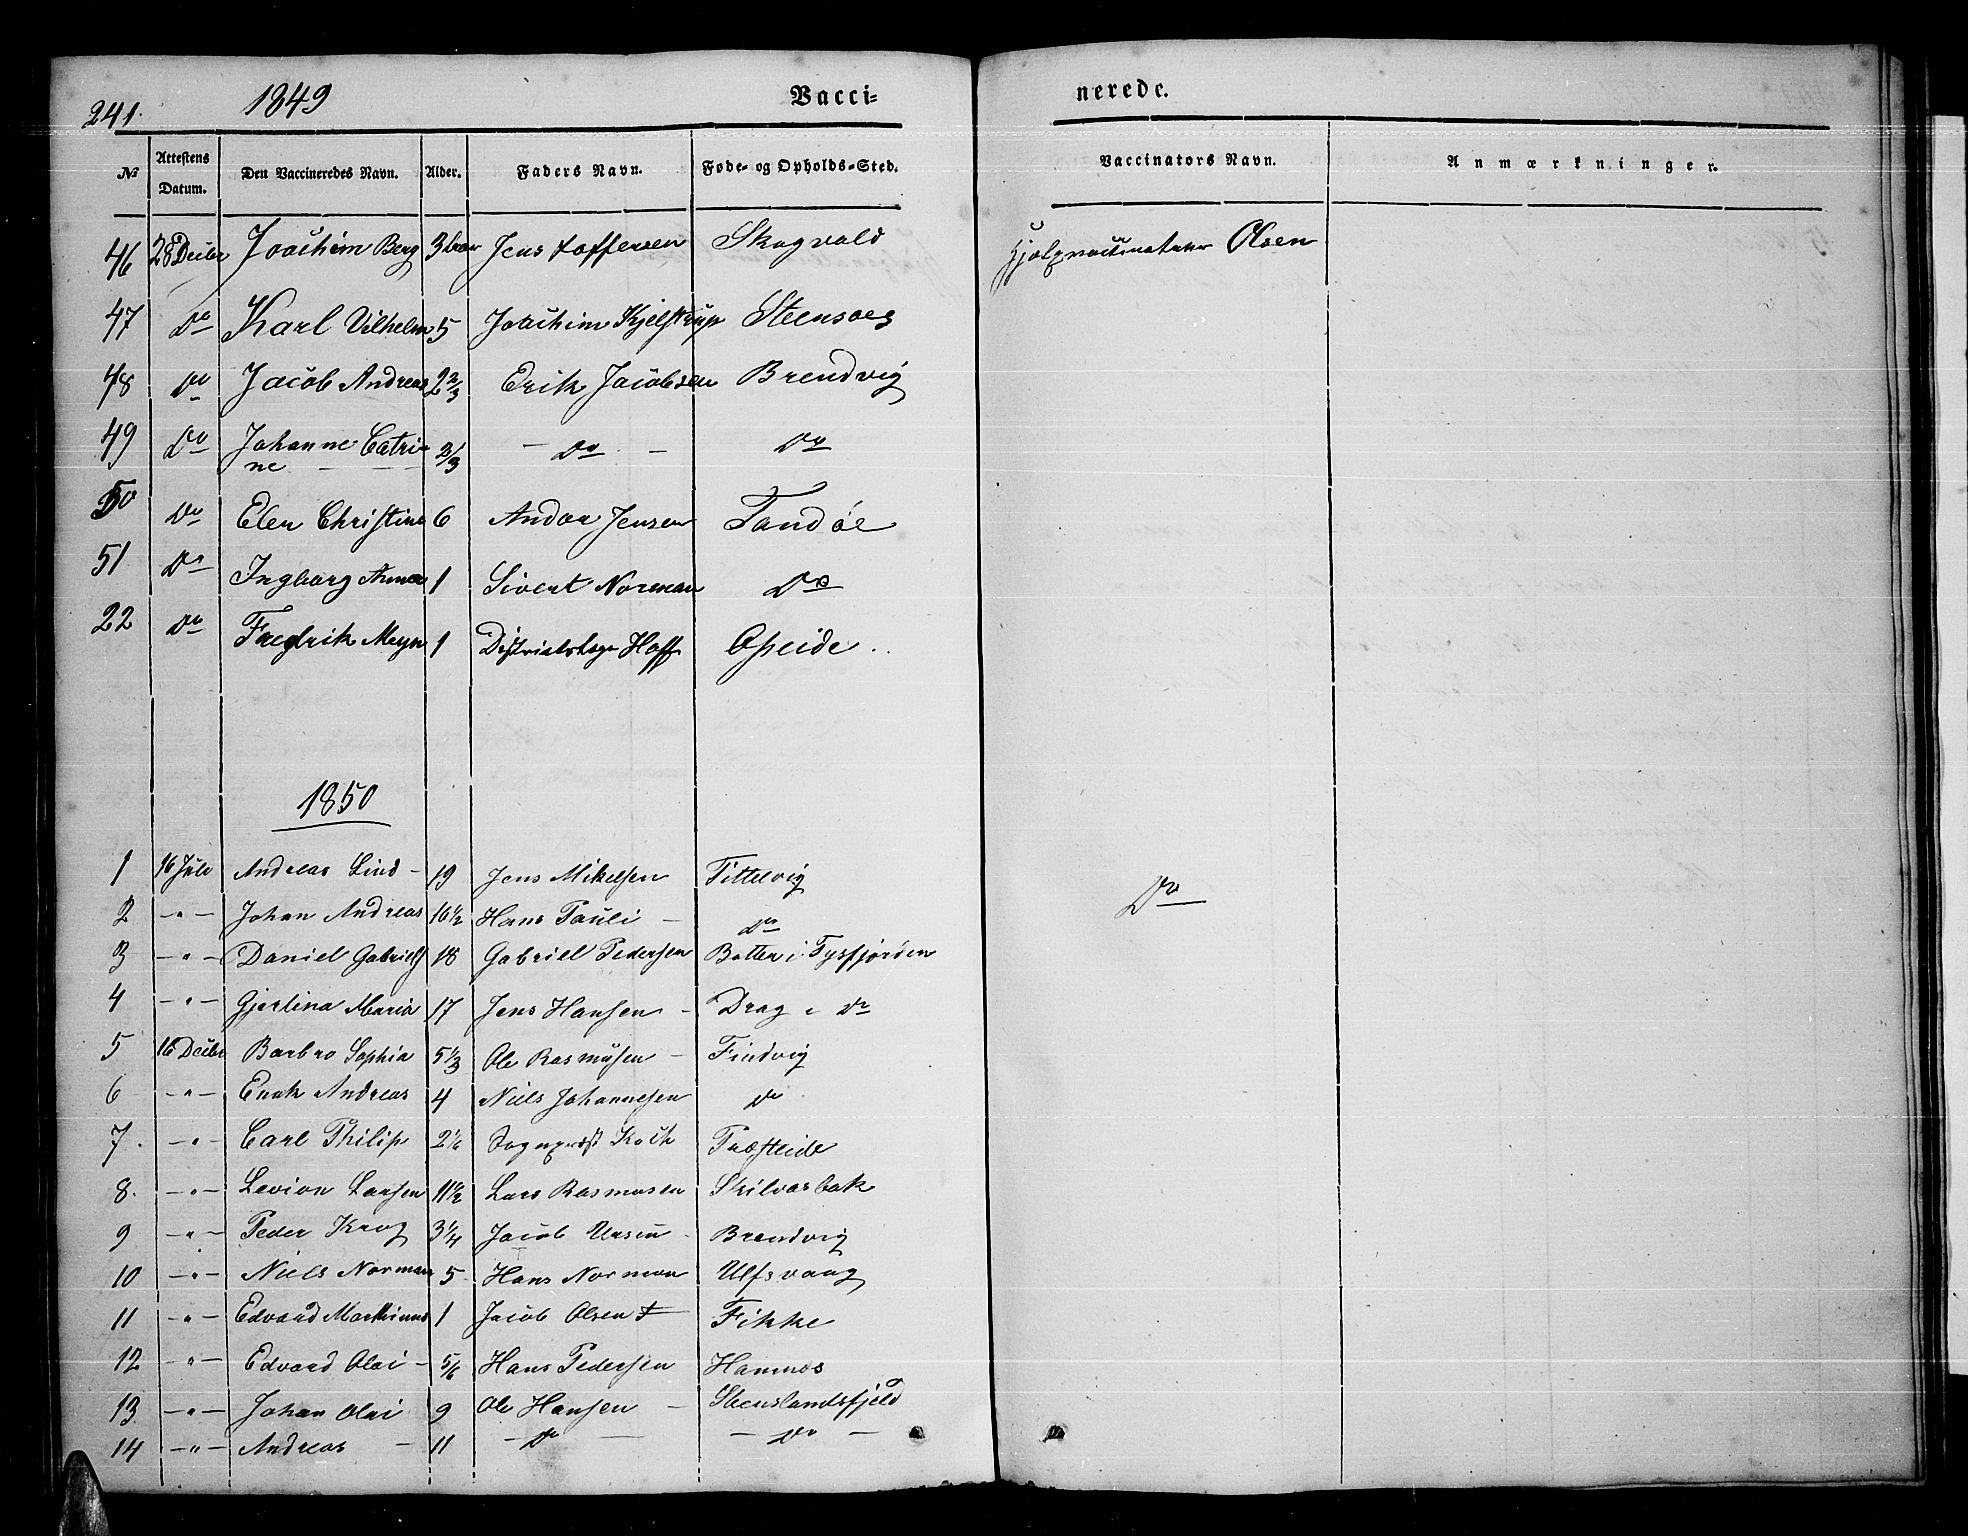 241. 1849 Vacci= nerede.
No Attestens Datum. Den Vaccineredes Navn. Alder. Faders Navn. Føde- og Opholds-Sted. Vaccinators Navn. Anmærkninger.
46 28 Decbr Joachim Berg 3 Jens Toffersen Skogvold Hjelpevaccinateur Olsen
47 Do Karl Vilhelm 5 Joachim Kjelstrup Steensoeg
48 Do Jacob Andreas 2 2/3 Erik Jacobsen Brendvig
49 Do Johanne Catri-
ne 2/3 Do Do
50 Do Elen Christine 6 Andor Jensen Tandøe
51 Do Ingborg Anna 1 Sivert Norman Do
22 Do Fredrik Meyn 1 Districtslæge Hoff Opeide
1850
1 16 Juli Andreas Lind 19 Jens Mikelsen Tittelvig Do
2 -"- Johan Andreas 16 1/2 Hans Pauli Do
3 -"- Daniel Gabriels 18 Gabriel Pedersen Botten i Tysfjorden
4 -"- Gjertina Maria 17 Jens Hansen Drag i Do
5 16 Decbr Barbro Sophia 5 1/3 Ole Rasmusen Findvig
6 -"- Enok Andreas 4 Niels Johannesen Do
7 -"- Carl Philip 2 1/6 Sognepræst Koch Præsteide
8 -"- Levion Larsen 11 1/2 Lars Rasmusen Skilvasbak
9 -"- Peder Krog 3 1/4 Jacob Brendvig
10 -"- Niels Norman 5 Hans Norman Ulfsvaag
11 -"- Edvard Marthinus 1 Jacob Olsen Fikke
12 -"- Edvard Olai 5/6 Hans Pedersen Hamnes
13 -"- Johan Olai 9 Ole Hansen Steenslandsfjeld
14 -"- Andreas 11 Do Do